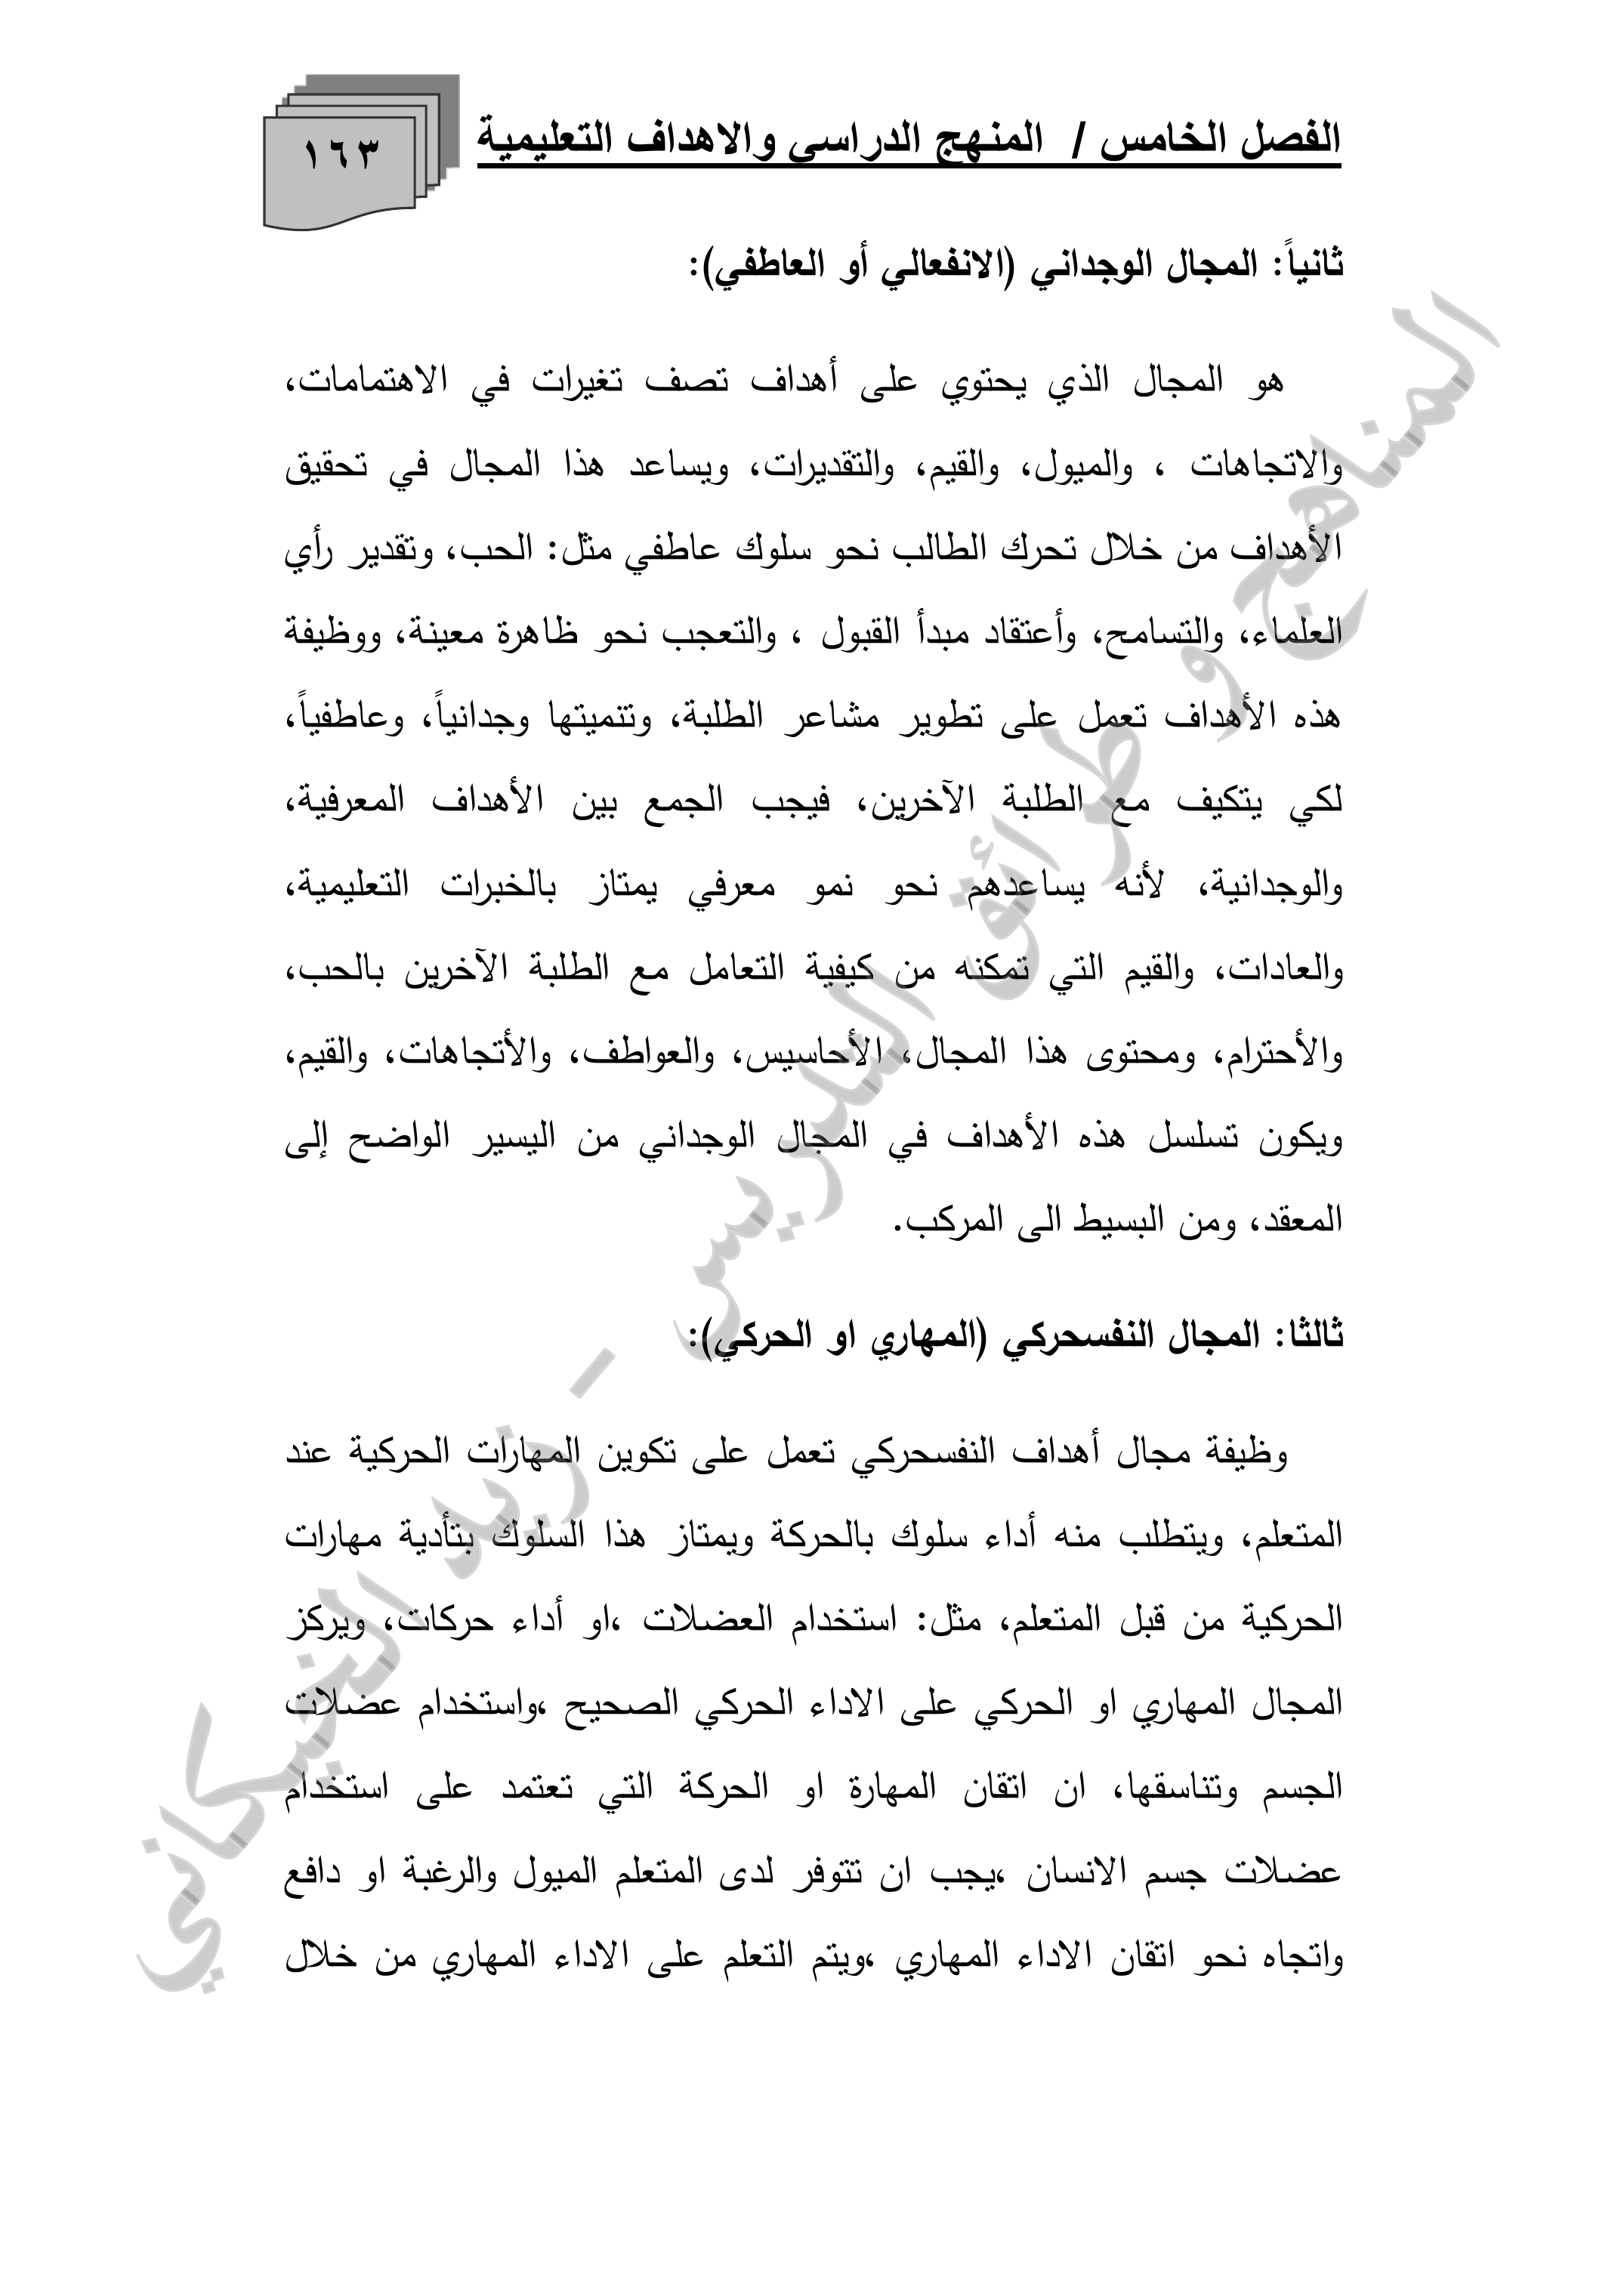 الفصل الخامس / المنهج الدراسي والاهداف التعليمية
١٦٣
ثانياً: المجال الوجداني (الانفعالي أو العاطفي):
هو المجال الذي يحتوي على أهداف تصف تغيرات في الاهتمامات،
والاتجاهات ، والميول، والقيم، والتقديرات، ويساعد هذا المجال في تحقيق
الأهداف من خلال تحرك الطالب نحو سلوك عاطفي مثل: الحب، وتقدير رأي
العلماء، والتسامح، وأعتقاد مبدأ القبول ، والتعجب نحو ظاهرة معينة، ووظيفة
هذه الأهداف تعمل على تطوير مشاعر الطلبة، وتنميتها وجدانياً، وعاطفياً،
لكي يتكيف مع الطلبة الآخرين، فيجب الجمع بين الأهداف المعرفية،
والوجدانية، لأنه يساعدهم نحو نمو معرفي يمتاز بالخبرات التعليمية،
والعادات، والقيم التي تمكنه من كيفية التعامل مع الطلبة الآخرين بالحب،
والأحترام، ومحتوى هذا المجال، الأحاسيس، والعواطف، والأتجاهات، والقيم،
ويكون تسلسل هذه الأهداف في المجال الوجداني من اليسير الواضح إلى
المعقد، ومن البسيط الى المركب.
ثالثا: المجال النفسحركي (المهاري او الحركي):
وظيفة مجال أهداف النفسحركي تعمل على تكوين المهارات الحركية عند
المتعلم، ويتطلب منه أداء سلوك بالحركة ويمتاز هذا السلوك بتأدية مهارات
الحركية من قبل المتعلم، مثل: استخدام العضلات ،او أداء حركات، ويركز
المجال المهاري او الحركي على الاداء الحركي الصحيح ،واستخدام عضلات
الجسم وتناسقها، ان اتقان المهارة او الحركة التي تعتمد على استخدام
عضلات جسم الانسان ،يجب ان تتوفر لدى المتعلم الميول والرغبة او دافع
واتجاه نحو اتقان الاداء المهاري ،ويتم التعلم على الاداء المهاري من خلال
المناهج و طرائق التدريس - زيد الخيكاني